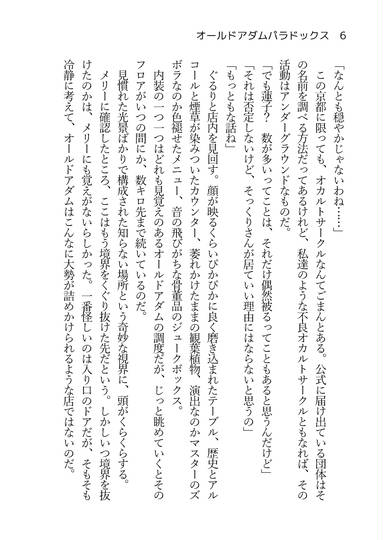 オールドアダムパラドックス　6
「なんとも穏やかじゃないわね……」
　この京都に限っても、オカルトサークルなんてごまんとある。公式に届け出ている団体はそ
の名前を調べる方法だってあるけれど、私達のような不良オカルトサークルともなれば、その
活動はアンダーグラウンドなものだ。
「でも蓮子？　数が多いってことは、それだけ偶然被るってこともあると思うんだけど」
「それは否定しないけど、そっくりさんが居ていい理由にはならないと思うの」
「もっともな話ね」
　ぐるりと店内を見回す。顔が映るくらいぴかぴかに良く磨き込まれたテーブル、歴史とアル
コールと煙草が染みついたカウンター、萎れかけたままの観葉植物、演出なのかマスターのズ
ボラなのか色褪せたメニュー、音の飛びがちな骨董品のジュークボックス。
　内装の一つ一つはどれも見覚えのあるオールドアダムの調度だが、じっと眺めていくとその
フロアがいつの間にか、数キロ先まで続いているのだ。
　見慣れた光景ばかりで構成された知らない場所という奇妙な視界に、頭がくらくらする。
　メリーに確認したところ、ここはもう境界をくぐり抜けた先だという。しかしいつ境界を抜
けたのかは、メリーにも覚えがないらしかった。一番怪しいのは入り口のドアだが、そもそも
冷静に考えて、オールドアダムはこんなに大勢が詰めかけられるような店ではないのだ。